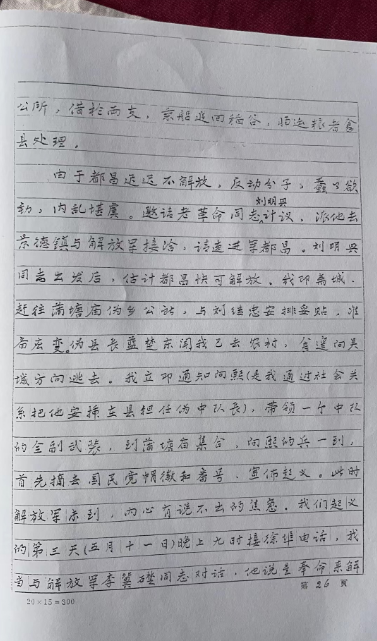 公所，借枪两支，亲船追回稻谷，顺送粮者食
县处理。
由于都昌迟迟不解放，反动分子，蠢蠢欲
刘明兴
动，内乱堪虞。邀请老革命同志计议，派他去
景德镇与解放军接洽，请速进军都昌。刘明兴
同志出发后，估计都昌快可解放。我即离城，
赶往蒲塘庙伪乡公所，与刘 安排妥贴，准
备应变。伪县长 东闻我已去农村，仓遑向吴
城方向逃去。我立即通知向熙(是我通过社会关
系把他安排在县担任伪中队长)，带领一个中队
的全副武装，到蒲塘庙集合，向熙的兵一到，
首先摘去国民党帽徽和番号，宣佈起义。此时
解放军未到，内心有说不出的焦急。我们起义
的第三天(五月十一日)晚上九时接徐 电话，我
与解放军李 同志对话，他说是奉命来解
第26页
20×15=300